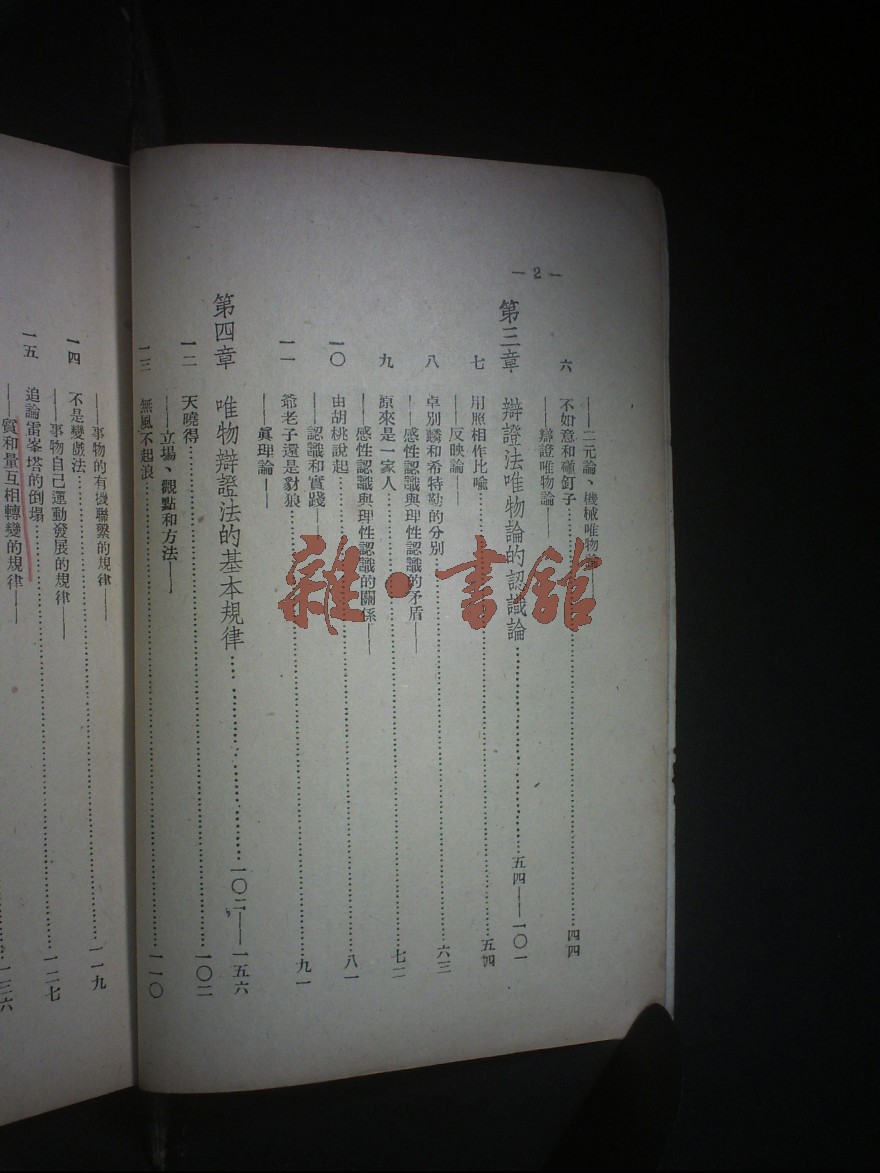 — 2 —
——二元論、機械唯物論——
六 不如意和碰釘子…………四四
——辯證唯物論——
第三章 辯證法唯物論的認識論…………五四——一〇一
七 用照相作比喻…………五四
——反映論——
八 卓別麟和希特勒的分別…………六三
——感性認識與理性認識的矛盾——
九 原來是一家人…………七二
——感性認識與理性認識的關係——
一〇 由胡桃說起…………八一
——認識和實踐——
一一 爺老子還是豺狼…………九一
——眞理論——
第四章 唯物辯證法的基本規律…………一〇二——一五六
一二 天曉得…………一〇二
——立場、觀點和方法——
一三 無風不起浪…………一一〇
——事物的有機聯繫的規律——
一四 不是變戲法…………一一九
——事物自己運動發展的規律——
一五 追論雷峯塔的倒塌…………一二七
——質和量互相轉變的規律——
一三六
雜·書館